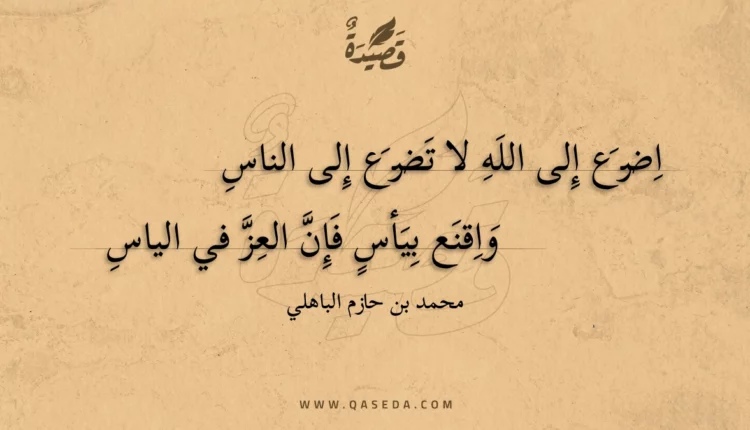 قَصِيْدَةٌ
اِضرَع إِلى اللَهِ لا تَضرَع إِلى الناسِ
وَاِقنَع بِيَأسٍ فَإِنَّ العِزَّ في الياسِ
محمد بن حازم الباهلي
WWW.QASEDA.COM